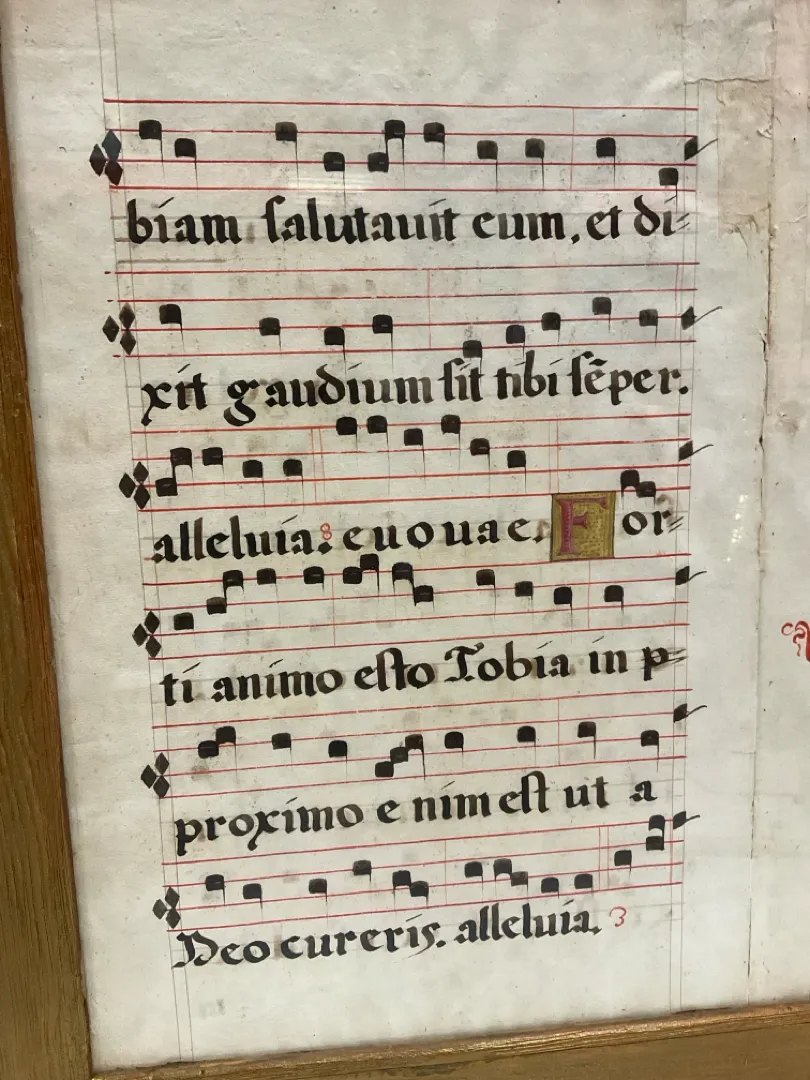 biam salutauit eum, et di=
xit gaudium sit tibi sēper.
alleluia. 8 euouae. For=
ti animo esto Tobia in p=
proximo enim est ut a
Deo cureris. alleluia. 3